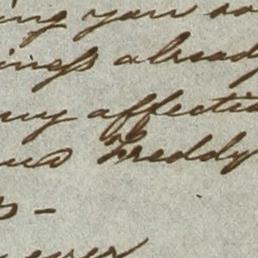 ing you so
iness alread
my affectio
and Freddy
s -
ever